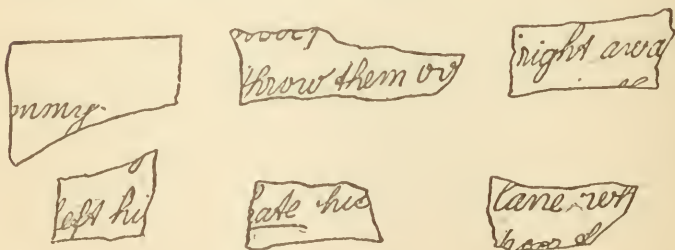 mmy.
throw them ov
right awa
left hi
ate his
lane